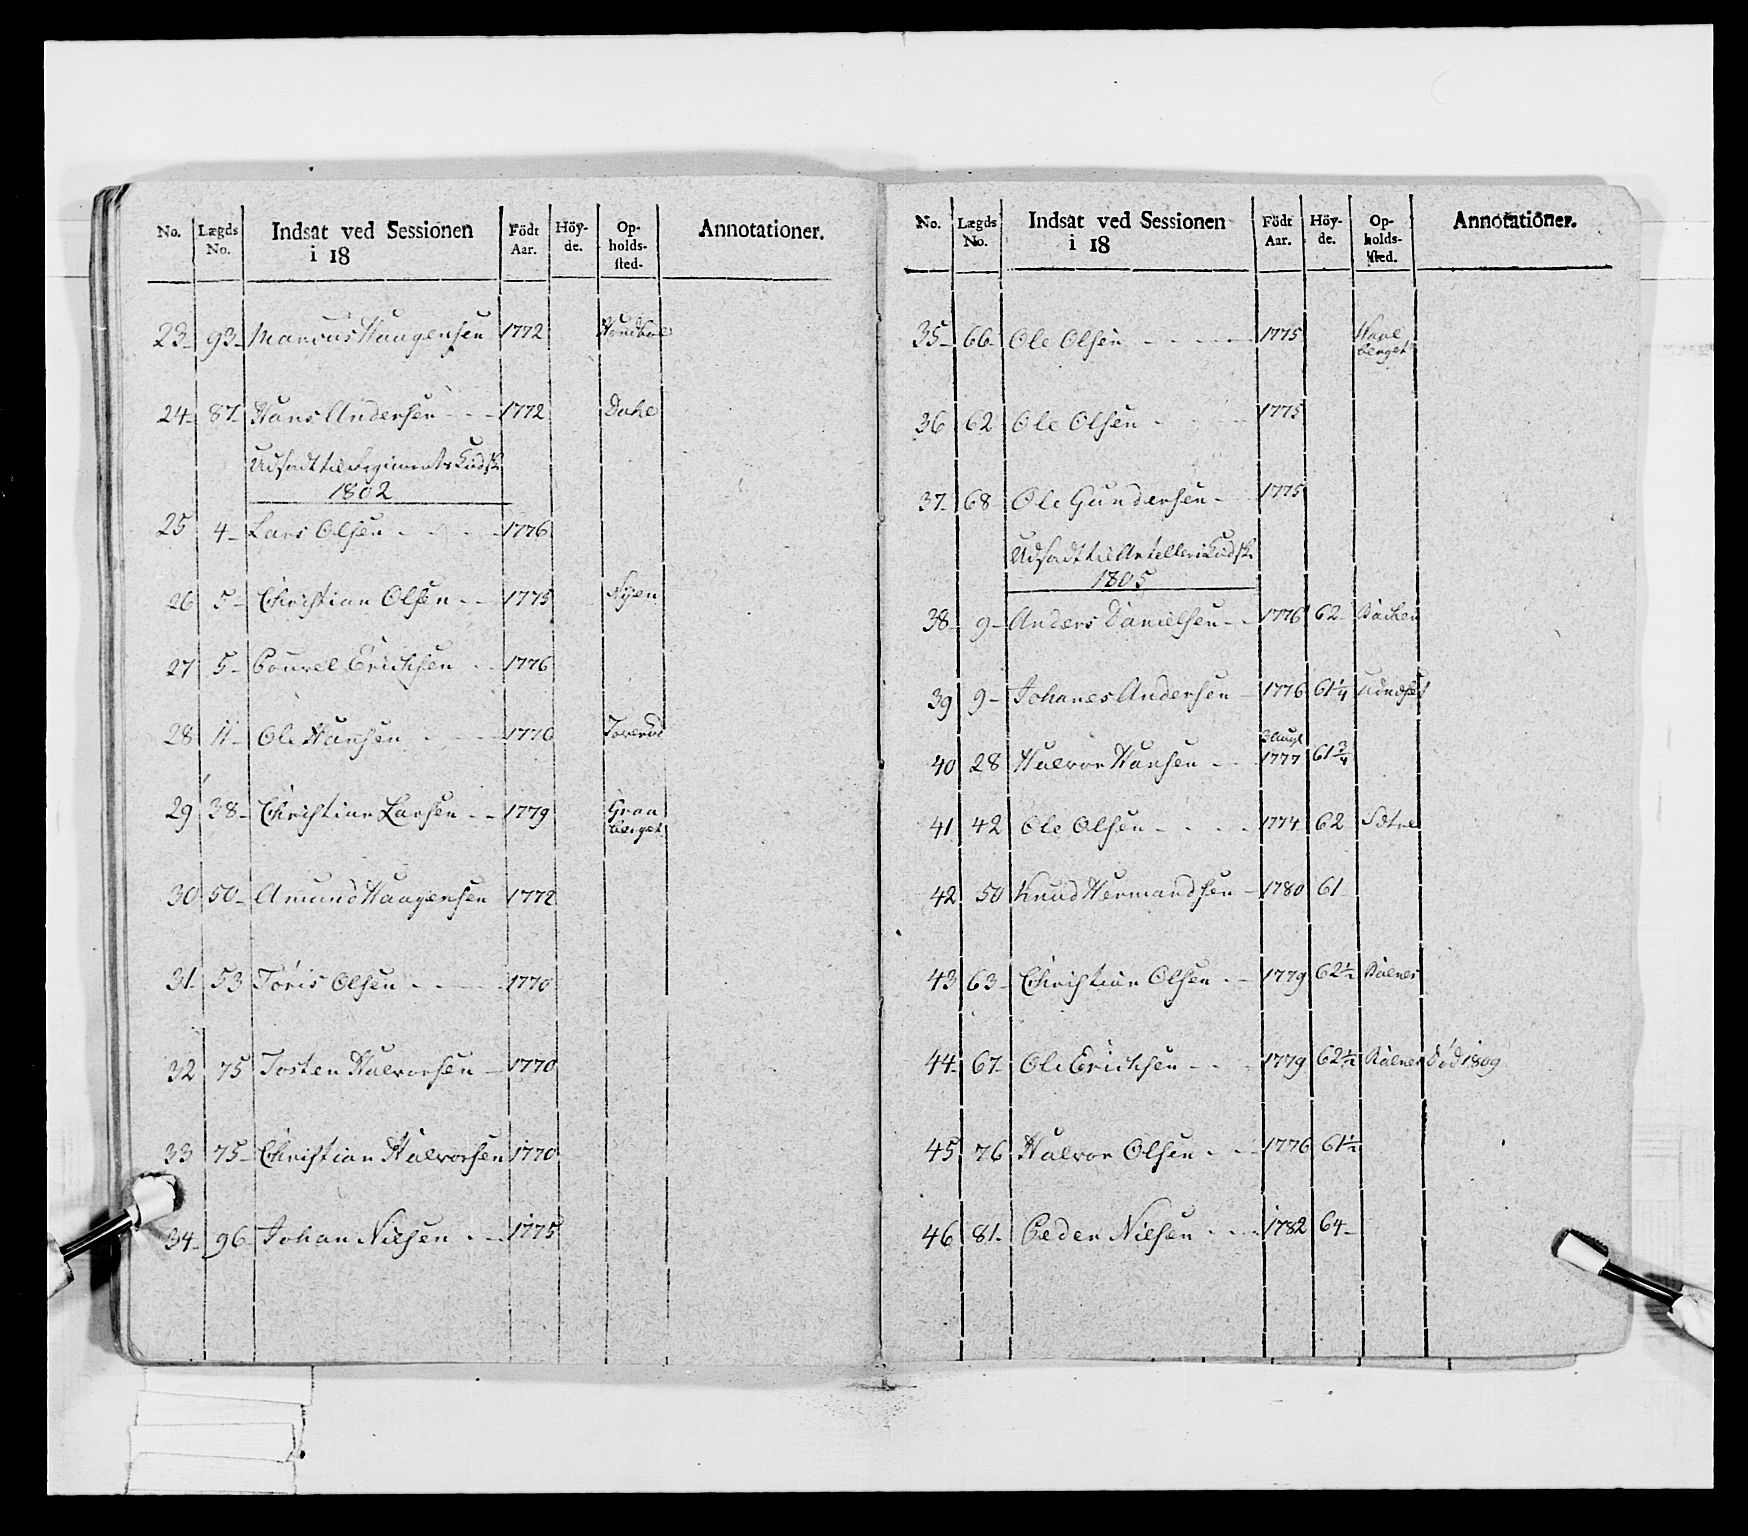 No. Lægds No. Indsat ved Sessionen i 18 Födt Aar. Höy-de. Op-holds-sted. Annotationer.
23 93 Marcus Haagensen 1772
24 87 Hans Andersen 1772 Dahl
Udsadt til Regiments Kudsk
1802
25 4 Lars Olsen 1776
26 5 Christian Olsen 1775 Nyen
27 5 Pouvel Erichsen 1776
28 11 Ole Hansen 1770
29 38 Christian Larsen 1779 Gran
berget
30 50 Amund Haagensen 1772
31 53 Joris Olsen 1770
32 75 Josten Halvorsen 1770
33 75 Christian Halvorsen 1770
34 96 Johan Nielsen 1775
No. Lægds No. Indsat ved Sessionen i 18 Födt Aar. Höy-de. Op-holds-sted. Annotationer.
35 66 Ole Olsen 1775
berget
36 62 Ole Olsen 1775
37 68 Ole Gundersen 1775
Udsadt til Artelleri Kudsk
1805
38 9 Anders Danielsen 1776 62 Backen
39 9 Johanes Andersen 1776 61 1/4
40 28 Halvor Hansen 1777 61 3/4
41 42 Ole Olsen 1774 62 Sætre
42 50 Knud Hermandsen 1780 61
43 63 Christian Olsen 1779 62 1/2
44 67 Ole Erichsen 1779 62 1/2 Død 1809
45 76 Halvor Olsen 1776 61 1/2
46 81 Peder Nielsen 1782 64